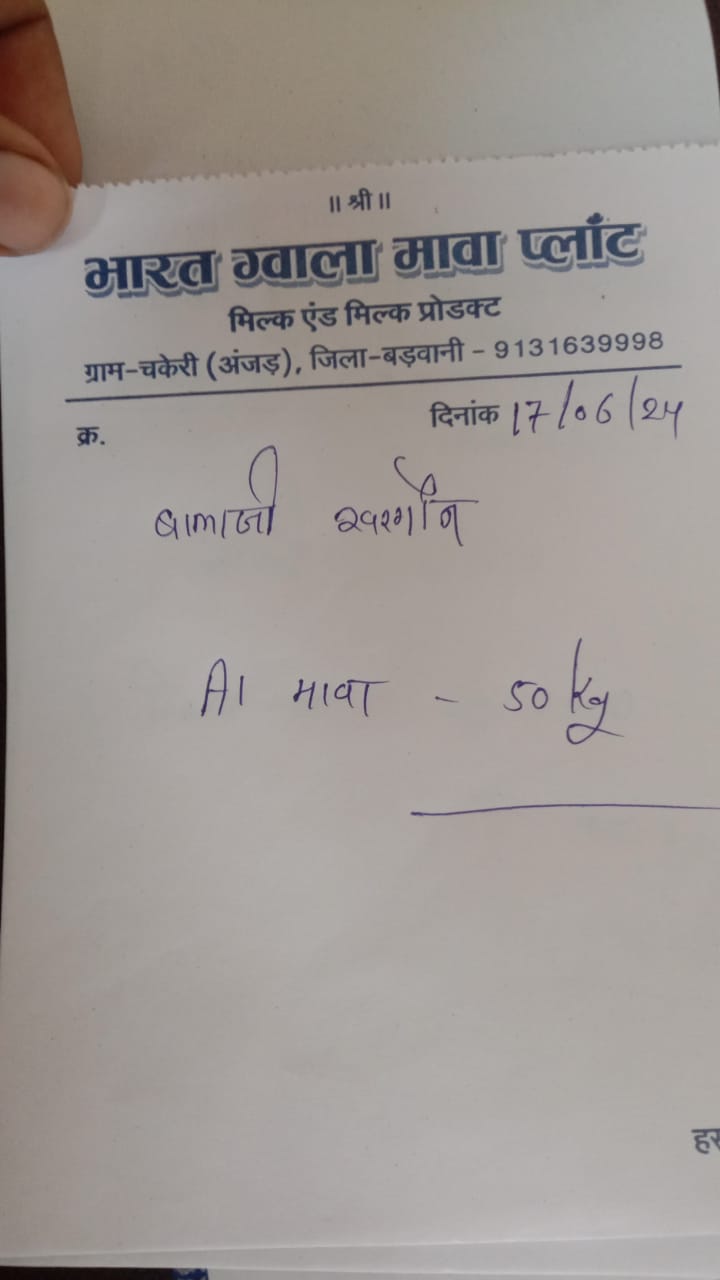 ॥ श्री ॥
भारत ग्वाला मावा प्लाँट
मिल्क एंड मिल्क प्रोडक्ट
ग्राम-चकेरी (अंजड़), जिला-बड़वानी - 9131639998
क्र. दिनांक 17/06/24
बालाजी खरगोन
A1 मावा - 50 kg